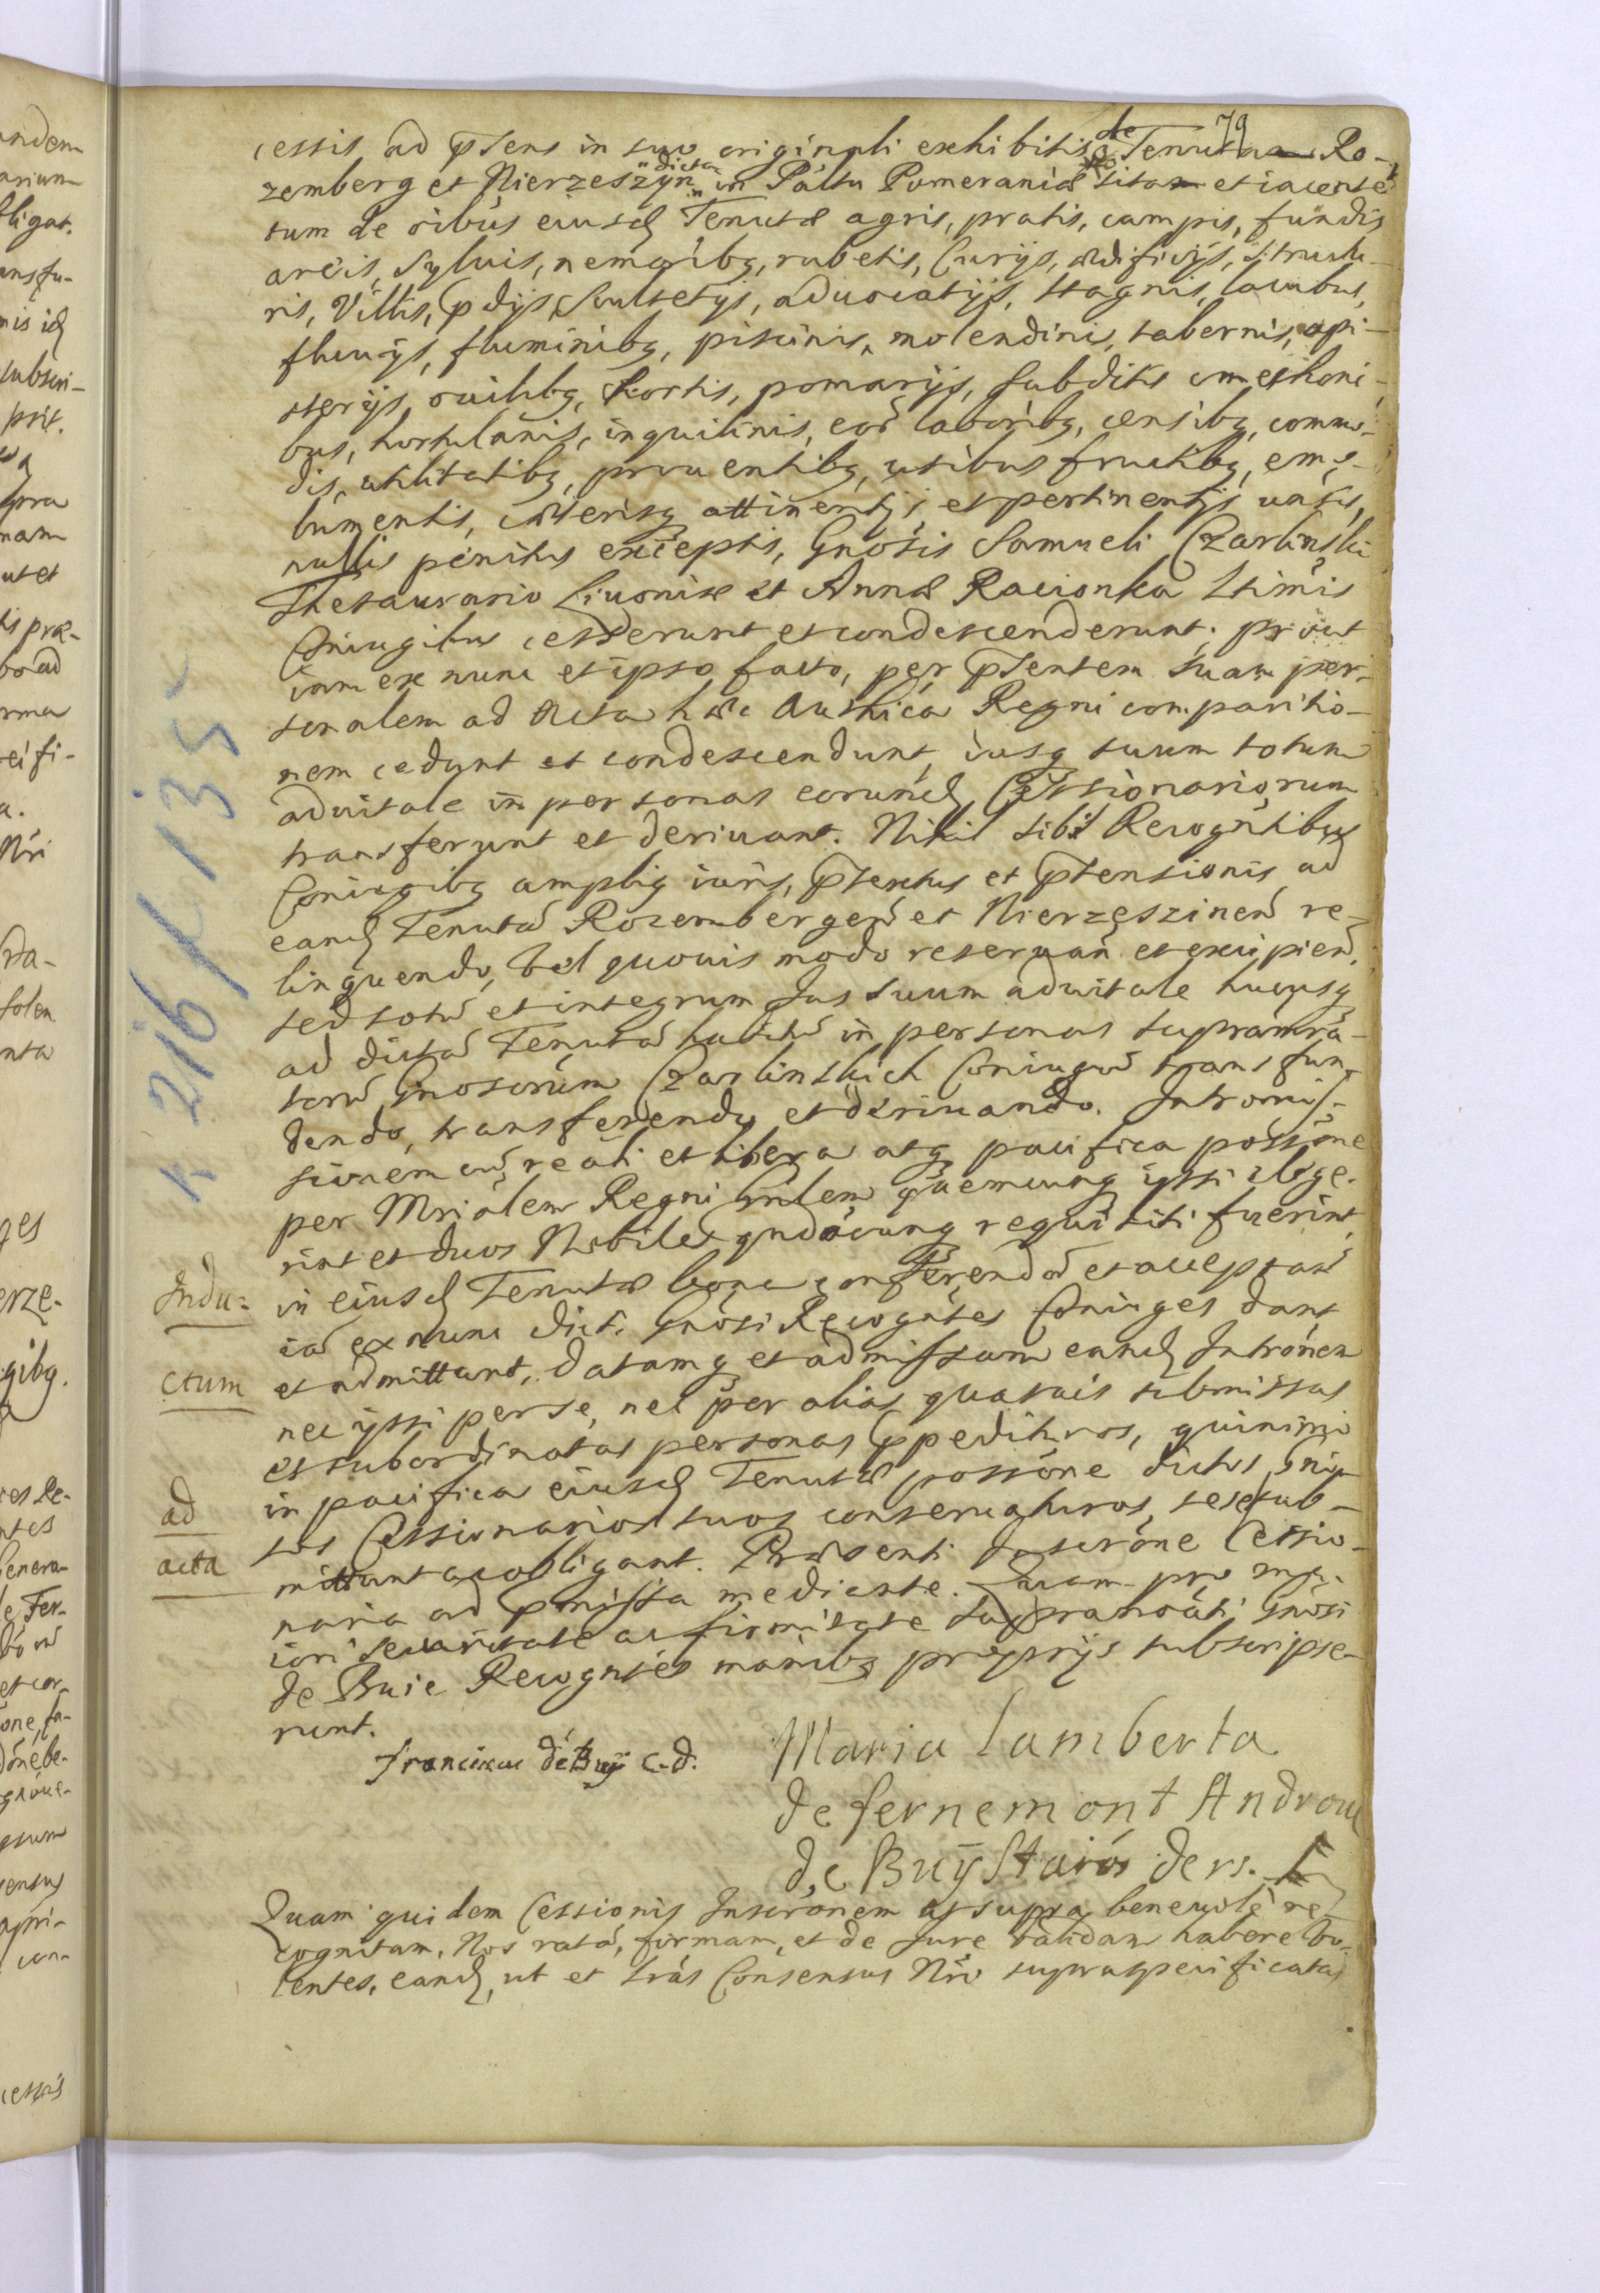 79
cessis, ad pñtens in suo originali exhibitis de Tenuta Ro-
zemberg et Nierzeszyn dicta in Palttu Pomeraniæ sita et iacente
tum de oibus eiusd Tenutæ agris, pratis, campis, fundis
areis, syluis, nemoribq, rubetis, Curijs, ædificijs, structu-
ris, Villis, pdijs, scultetijs, aduocatijs, stagnis, lacubus,
fluuijs, fluminibq, piscinis, molendinis, tabernis, api-
sterijs, ouilibq, hortis, pomarijs, subditis cmethoni-
bus, hortulanis, inquilinis, eor laboribq, censibq, commo-
dis, utilitatibq, prouentibq, usibus fructibq, emo-
lumentis, cæterisq attinentijs et pertinentijs unitis,
nullis penitus exceptis, Gnosis Samueli Czarlinski
Thesaurario Liuoniæ et Annæ Racionka Ltimis
Coniugibus cesserunt et condescenderunt; prout
iam ex nunc et ipso facto, per pñtentem suam per-
sonalem ad Acta hæc Authica Regni comparitio-
nem cedunt et condescendunt, iusq suum totum
aduitale in personas eorund Cessionariorum
transferunt et deriuant. Nihil sibi Recogntibus
Coniugibq ampliq iuris, ptextus et ptensionis ad
eand Tenutã Rozembergeñ et Nierzeszineñ re-
linquendo, vel quouis modo reseruañ et excipieñ,
sed totũ et integrum Jus suum aduitale hucusq
ad dictã Tenutã habitũ in personas supramrã-
torũ Gnosorum Czarlinskich Coniugũ transfun-
dendo, transferendo et deriuando. Intromis-
sionem cũ reali et libera atq pacifica possione
per Mrialem Regni Gnlem quemcunq ipsi elege-
rint et duos Nobiles qndocunq requisiti fuerint,
in eiusd Tenutæ bona conferendã et acceptañ
iã ex nunc dicti Gnosi Recogntes Coniuges dant
et admittunt, datamq et admissam eand Introñem
nec ipsi per se, nec per alias quasuis submissas
et subordinatas personas ppedituros, quinimo
in pacifica eiusd Tenutæ possione dictos Coniu-
ges Cessionarios suos conseruaturos, sese sub-
mittunt ac obligant. Præsenti Inscrone Cessio-
naria ad pmissa mediante. Quam pro ma-
iori securitate ac firmitate supranoati Gnosi
de Buie Recogntes manibq proprijs subscripse-
runt.
Indu-
ctum
ad
acta
Franciscus de Buij C. d.
Maria Lamberta
de fernemont Androu
de Buÿ
Quam quidem Cessionis Inscronem ut supra beneuole re-
cognitam, Nos ratã, firmam, et de Jure validam habere vo-
lentes, eand, ut et Lrás Consensus Nri supraspecificatas